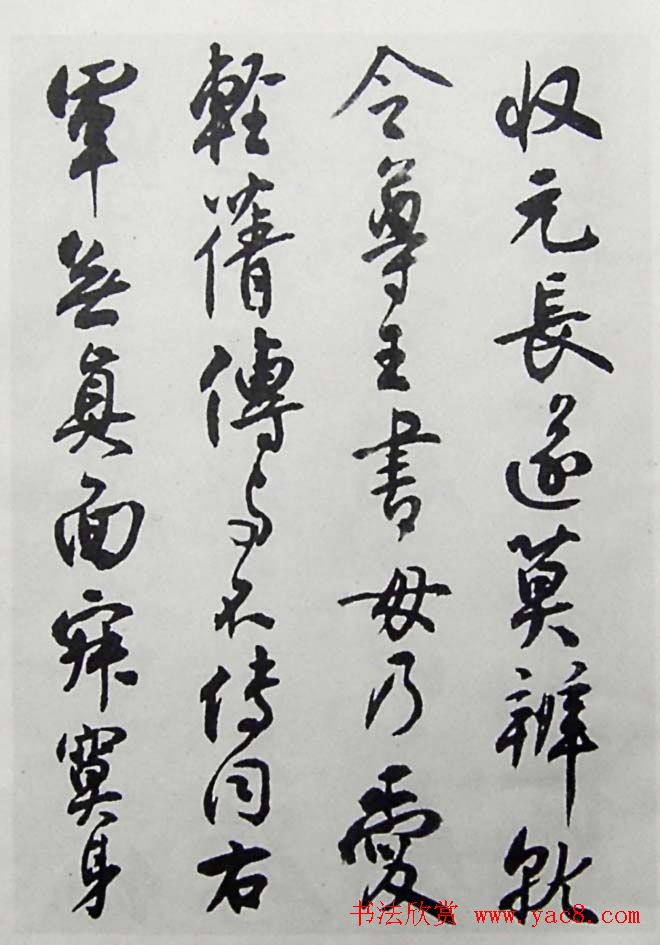 収元長遂莫辨就
令尊王書毋乃愛
輕蒨傳与不傳同右
軍無真面寂寞身
书法欣赏 www.yac8.com